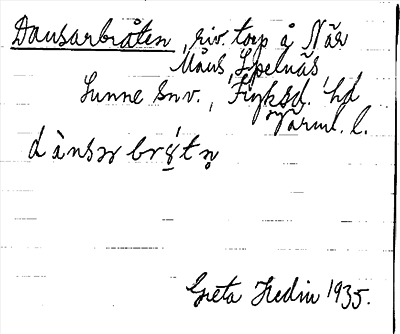 Dansarbråten, riv. torp å När
Måns, Spelnäs,
Sunne snv., Fryksd. hd
Värml. l.
dànsər brɤ́tn̥
Greta Hedin 1935.